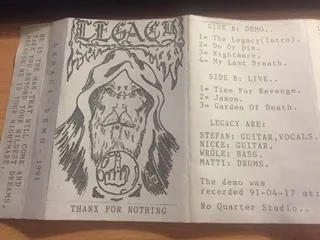 HE IS THE MAN THAT WILL COME AND
TAKE YOU BEYOND YOUR WILDEST DREAMS,
BECAUSE, HE IS YOUR NIGHTMARE.
LEGACY DEMO - 1991
LEGACY
THANX FOR NOTHING
SIDE A: DEMO..
1= The Legacy(Intro).
2= Do Or Die.
3= Nightmare.
4= My Last Breath.
SIDE B: LIVE..
1= Time For Revenge.
2= Jason.
3= Garden Of Death.
LEGACY ARE:
STEFAN: GUITAR,VOCALS.
NICKE: GUITAR.
WRÖLE: BASS.
MATTI: DRUMS.
The demo was
recorded 91-04-17 at:
No Quarter Studio..